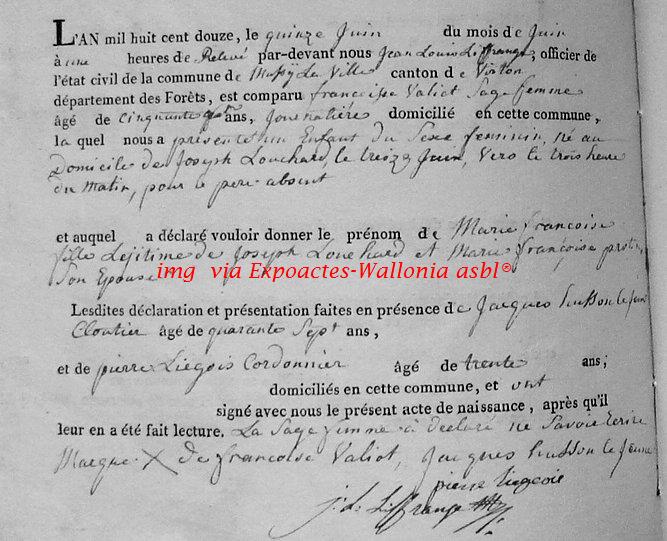 L'AN mil huit cent douze, le quinze Juin du mois de Juin
à une heures de Relevé par-devant nous Jean Louis Liffrange, officier de
l'état civil de la commune de Mussy La Ville canton de Virton
département des Forêts, est comparu francoisse Valiot Sage femme
âgé de Cinquante ans, Journalière domicilié en cette commune,
la quel nous a présenté un Enfant du Sexe feminin, né au
Domicile de Joseph Louchard, le treize Juin, vers le trois heure
du Matin, pour le pere absent
et auquel a déclaré vouloir donner le prénom de Marie francoise
fille Lejitime de Joseph Louchard et Marie françoise
Son Epouse
img via Expoactes-Wallonia asbl©
Lesdites déclaration et présentation faites en présence de Jacques husson le jeune
Cloutier âgé de quarante Sept ans,
et de pierre Liegois Cordonnier âgé de trente ans;
domiciliés en cette commune, et ont
signé avec nous le présent acte de naissance, après qu'il
leur en a été fait lecture. La Sage femme à déclaré ne Savoir Ecrire
Marque X de francoise Valiot, Jacques husson le Jeune
pierre liegeois
j. L. Liffrange